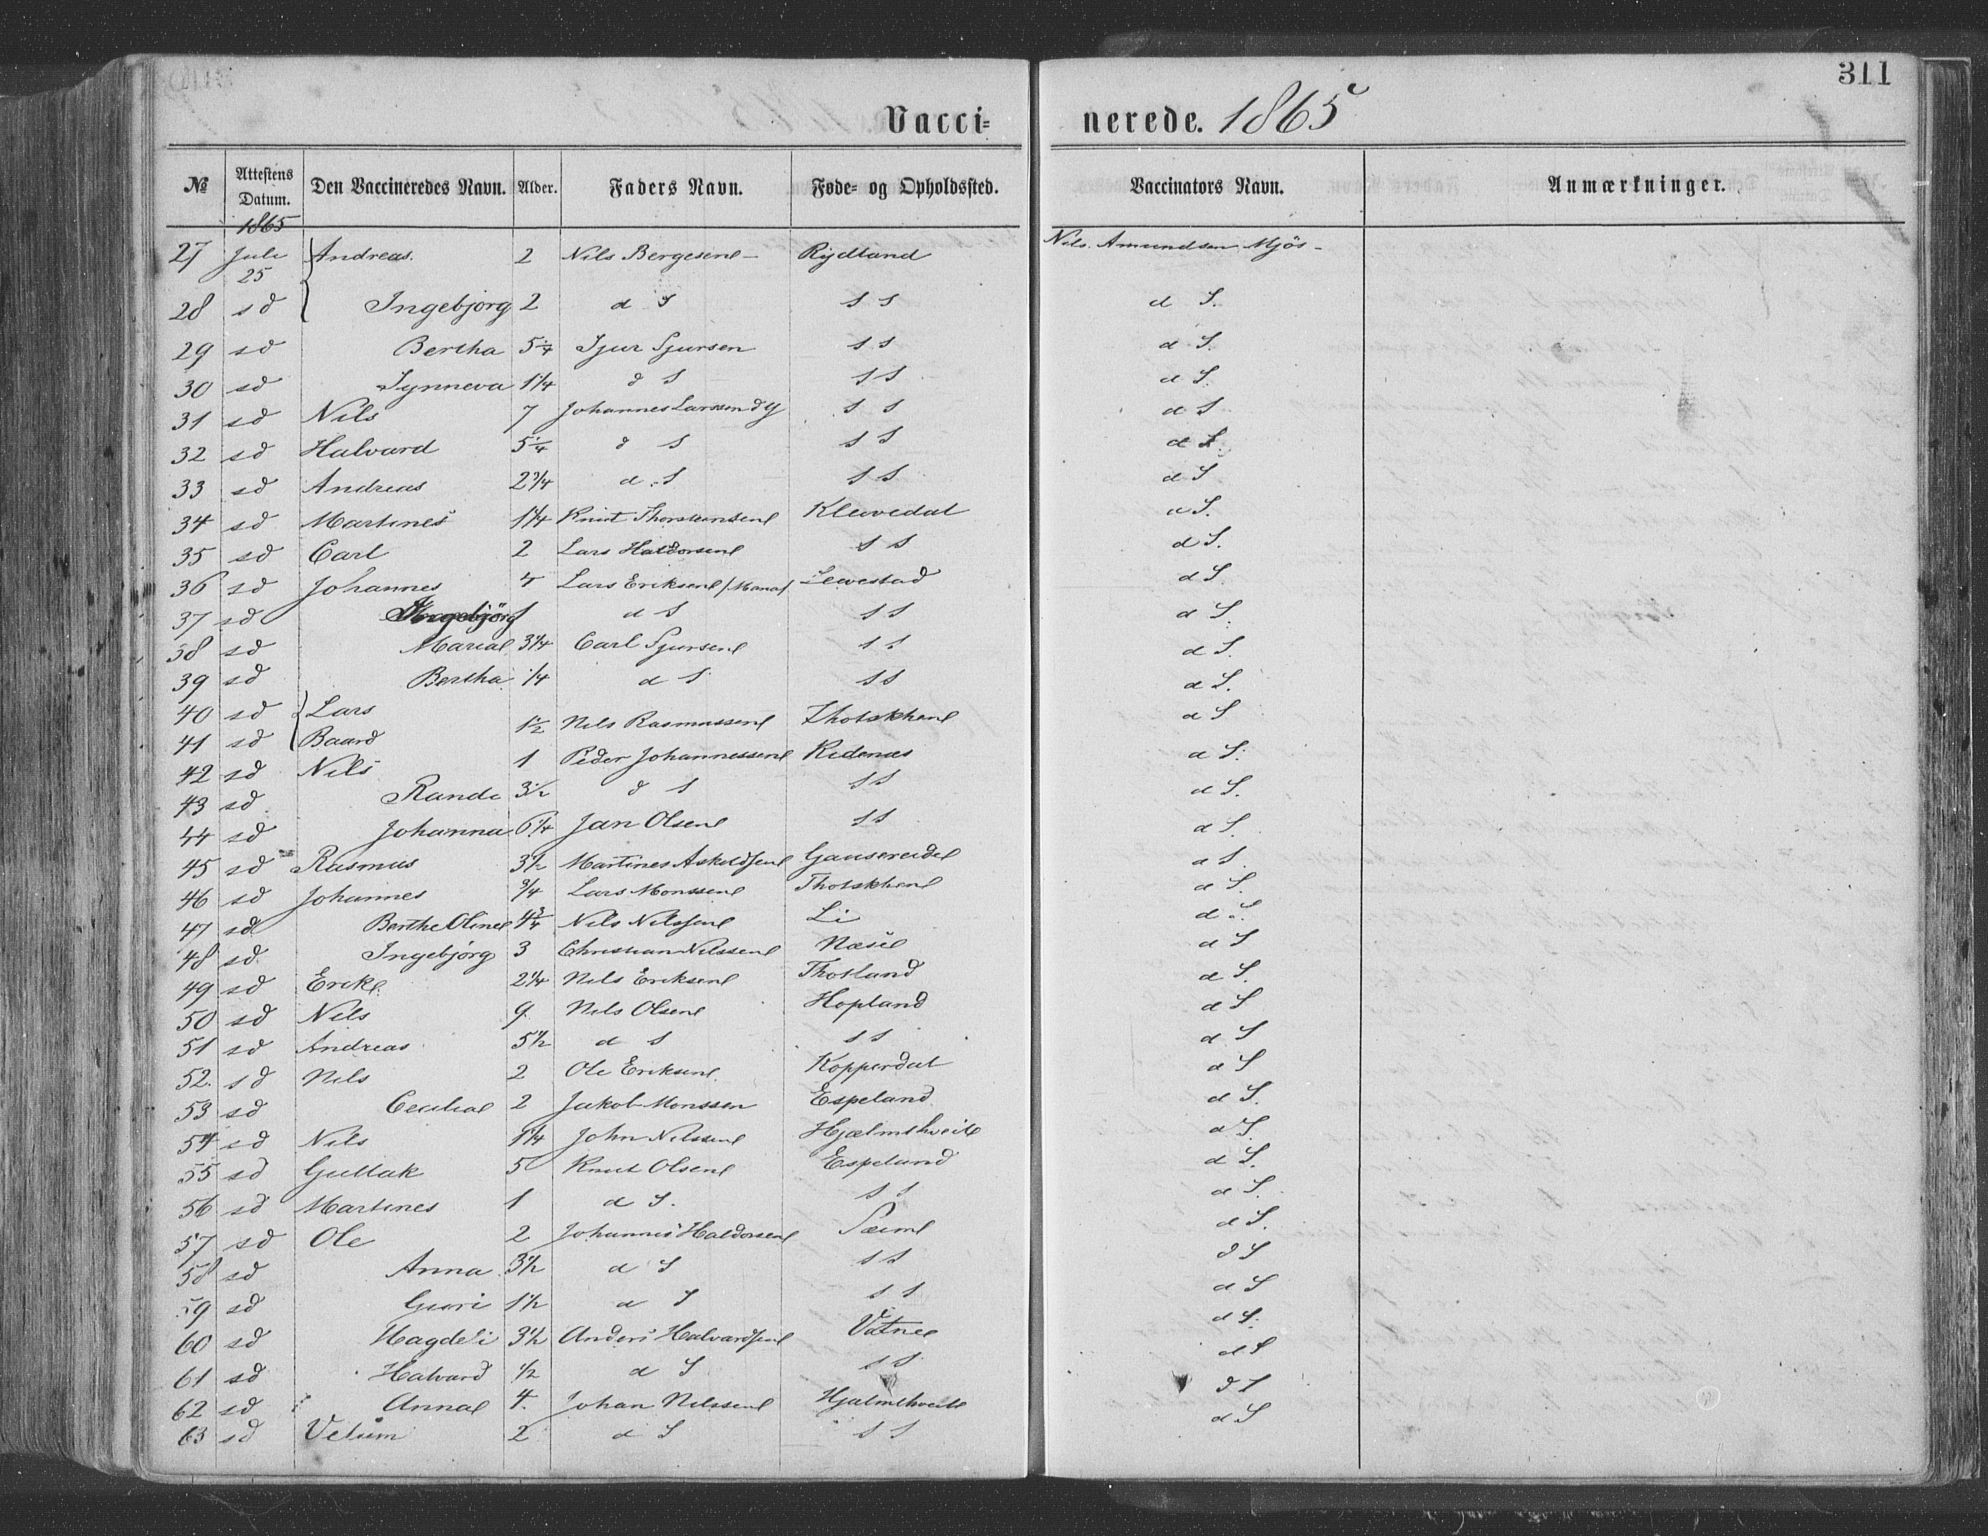 311
Vacci= nerede. 1865
№ Attestens Datum. Den Vaccineredes Navn. Alder. Faders Navn. Føde= og Opholdssted. Vaccinators Navn. Anmærkninger.
1865
27 Juli 25 Andreas. 2 Nils Bergesen - Rydland Nils Amundsen Mjös -
28 sd Ingebjörg 2 d S s s d S.
29 sd Bertha 5 1/4 Sjur Sjursen s s d S.
30 sd Synneva 1 1/4 d S s s d S.
31 sd Nils 7 Johannes Larssen dy s s d S
32 sd Halvard 5 1/4 d S s s d S.
33 sd Andreas 2 3/4 d S s s d S
34 sd Martines 1 1/4 Knut Thorsteinsen Klevedal d S.
35 sd Carl 2 Lars Haldorsen s s d S.
36 sd Johannes 4 Lars Eriksen Levestad d S.
37 sd Ingebjörg 1 d S s s d S.
38 sd Maria 3 1/4 Carl Sjursen s s d S.
39 sd Bertha 1/4 d S s s d S.
40 sd Lars d S
41 sd Baard 1 1/2 Nils Rasmussen
42 sd Nils 1 Peder Johannessen Ridenæs d S.
43 sd Randi 3 1/2 d S s s d S.
44 sd Johanna 6 1/4 Jan Olsen s s d S.
45 sd Rasmus 3 1/2 Martines Askeldsen Gausereide d S.
46 sd Johannes 3/4 Lars Monssen d S.
47 sd Berthe Oline 4 3/4 Nils Nilssen Li d S.
48 sd Ingebjörg 3 Christian Nilssen Næse d S
49 sd Erik 2 1/4 Nils Eriksen Thotland d S.
50 sd Nils 9 Nils Olsen Hopland d S
51 sd Andreas 5 1/2 d S s s d S
52. sd Nils 2 Ole Eriksen Kopperdal d S
53 sd Cecilia 2 Jakob Monssen Espeland d S.
54 sd Nils 1 1/4 John Nilssen Hjælmthveit d S.
55 sd Gullak 5 Knut Olsen Espeland d S.
56 sd Martines 1 d S. s s d S.
57 sd Ole 2 Johannes Haldorsen Sæim d S.
58 sd Anna 3 1/2 d S s s d S
59 sd Guri 1 1/2 d S s s d S
60 sd Magdeli 3 1/2 Anders Halvardsen Vatne d S.
61 sd Halvard 1/2 d S s s d S
62 sd Anna 4. Johan Nilssen Hjalmthveit d S
63 sd 2 d S s s d S